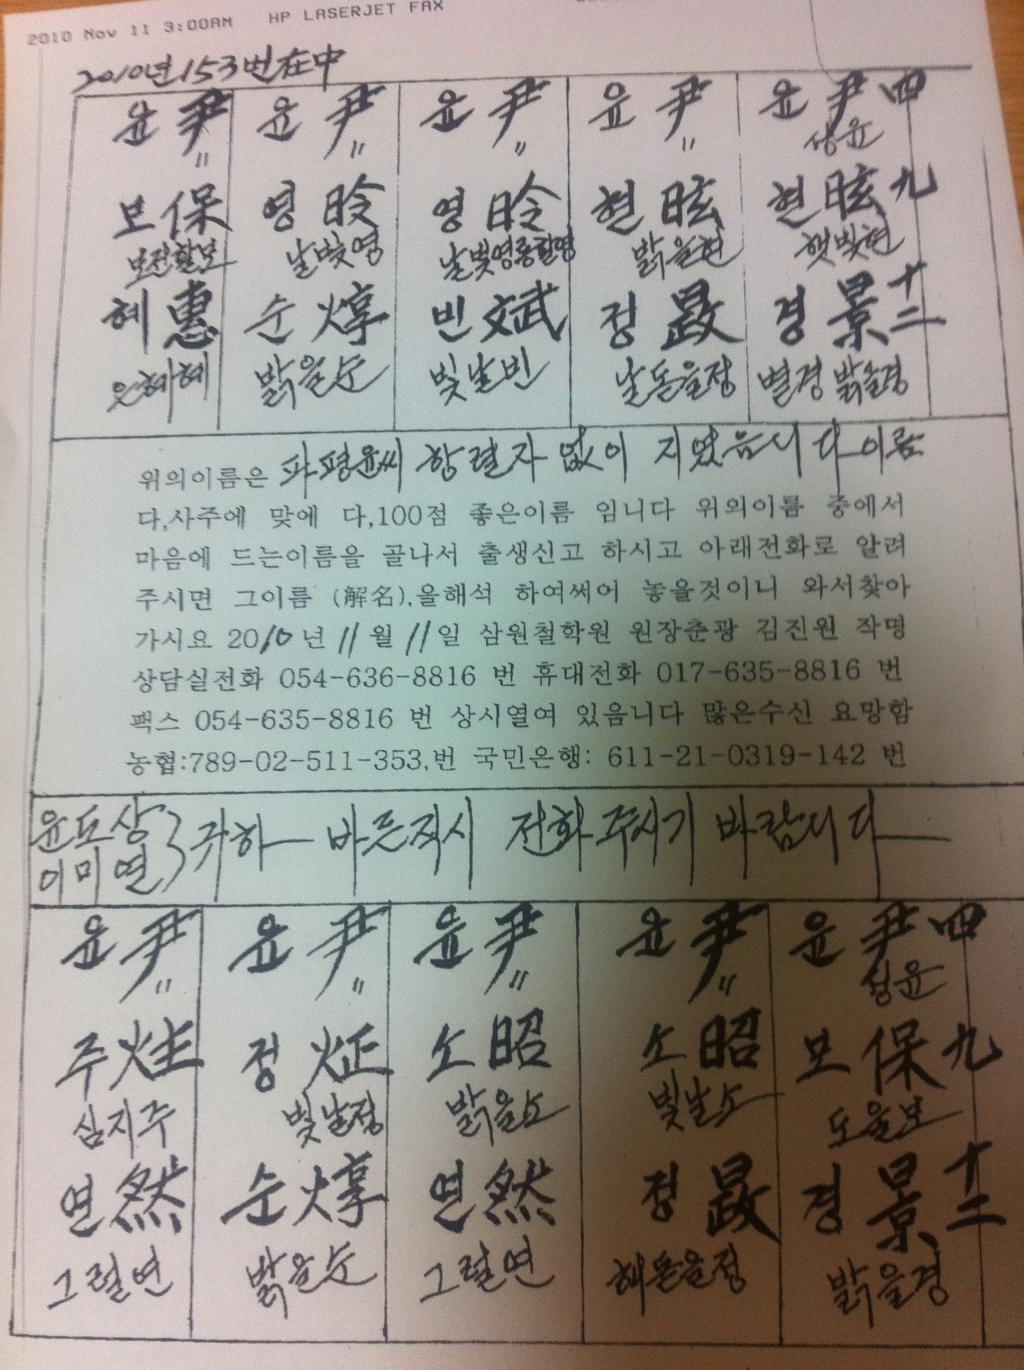 2010 Nov 11 3:00AM HP LASERJET FAX
2010년 153번 在中
윤 尹 윤 尹 윤 尹 윤 尹 윤 尹 四
〃 〃 〃 〃 성윤
보 保 영 昤 영 昤 현 昡 현 昡 九
보전할보 날빛영 날빛영롱할영 밝을현 햇빛현
혜 惠 순 焞 빈 斌 정 晸 경 景 十二
은혜혜 밝을순 빛날빈 날돋을정 별경 밝을경
위의이름은 파평윤씨 항렬자 없이 지었음니다 이름
다,사주에 맞에 다,100점 좋은이름 임니다 위의이름 중에서
마음에 드는이름을 골나서 출생신고 하시고 아래전화로 알려
주시면 그이름 (解名),을해석 하여써어 놓을것이니 와서찾아
가시요 2010년 11월 11일 삼원철학원 원장춘광 김진원 작명
상담실전화 054-636-8816 번 휴대전화 017-635-8816 번
팩스 054-635-8816 번 상시열여 있음니다 많은수신 요망함
농협:789-02-511-353,번 국민은행: 611-21-0319-142 번
윤도상
이미열 귀하 바른직시 전화 주시기 바람니다
윤 尹 윤 尹 윤 尹 윤 尹 윤 尹 四
〃 〃 〃 〃 성윤
주 炷 정 炡 소 昭 소 昭 보 保 九
심지주 빛날정 밝을소 빛날소 도울보
연 然 순 焞 연 然 정 晸 경 景 十二
그럴연 밝을순 그럴연 해돋을정 밝을경